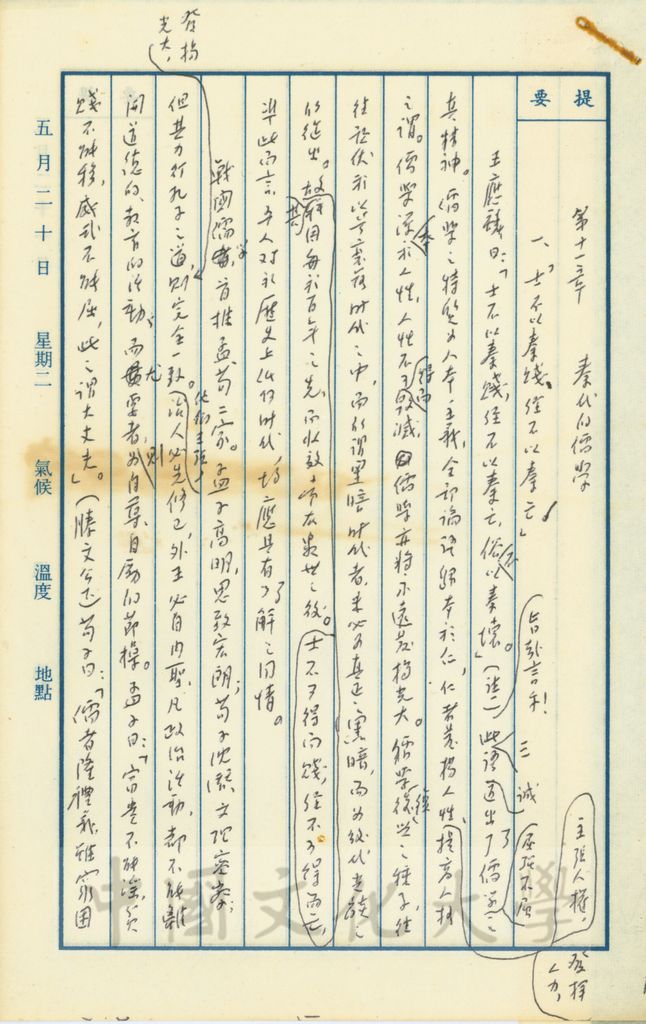 發揚
光大，
提要
第十一章　秦代的儒學
一、「士不以秦賤，經不以秦亡」
王應麟曰：「士不以秦賤，經不以秦亡，俗不以秦壞。」（註一）此語道出了儒學之
真精神。儒學之特質為人本主義，全部論語歸本於仁，仁者發揚人性，提高人格
之謂。儒學深求人性，人性不可毀滅，儒學亦將永遠發揚光大。儒學復興之種子，往
往潛伏於
衰落時代之中，而所謂黑暗時代者，未必為真正之黑暗，而為後代光明之
的從出。故
每於百年之先，而收效
在數世之後。士不可得而賤，經不可得而亡，
準此而言，吾人對於歷史上任何時代，均應具有了解之同情。
戰國儒學，首推孟荀二家。孟子高明，思致宏朗；荀子沈潛，文理密察；
但其力行孔子之道，則完全一致。
他們主張，
治人必先修己，外王必自內聖，凡政治活動，都不能離
開道德的、教育的活動；而尤要者則為自尊、自勵的節操。孟子曰：「富貴不能淫，貧
賤不能移，威武不能屈，此之謂大丈夫。」（滕文公下）荀子曰：「儒者隆禮義，雖窮困
三
誠
屈強不屈
主張人權，
發揮
人力，
五月二十日　星期二　氣候　溫度　地點
中國文化大學